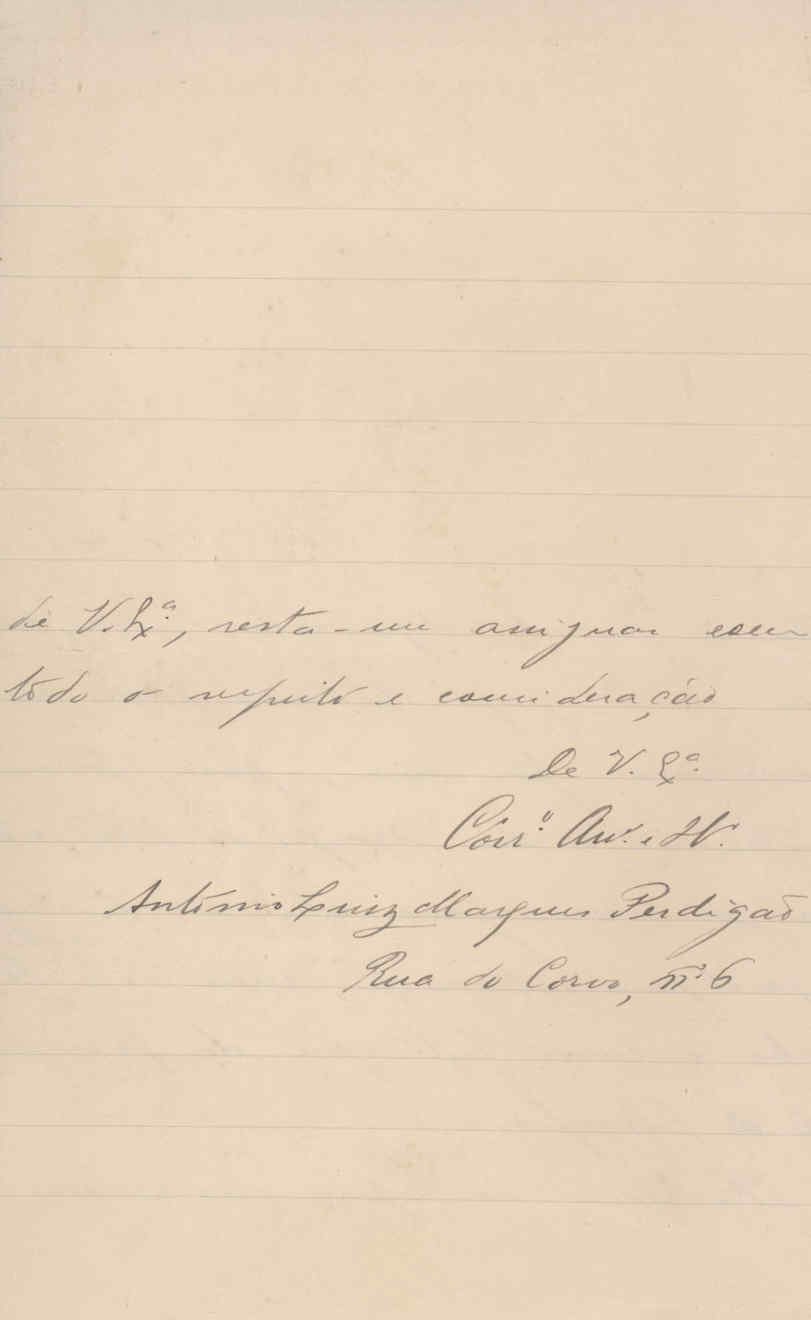 de V. Exª, resta-me assignar com
todo o respeito e consideração
De V. Exª.
Am.
António Luiz Marques Perdigão
Rua do Corvo, nº 6